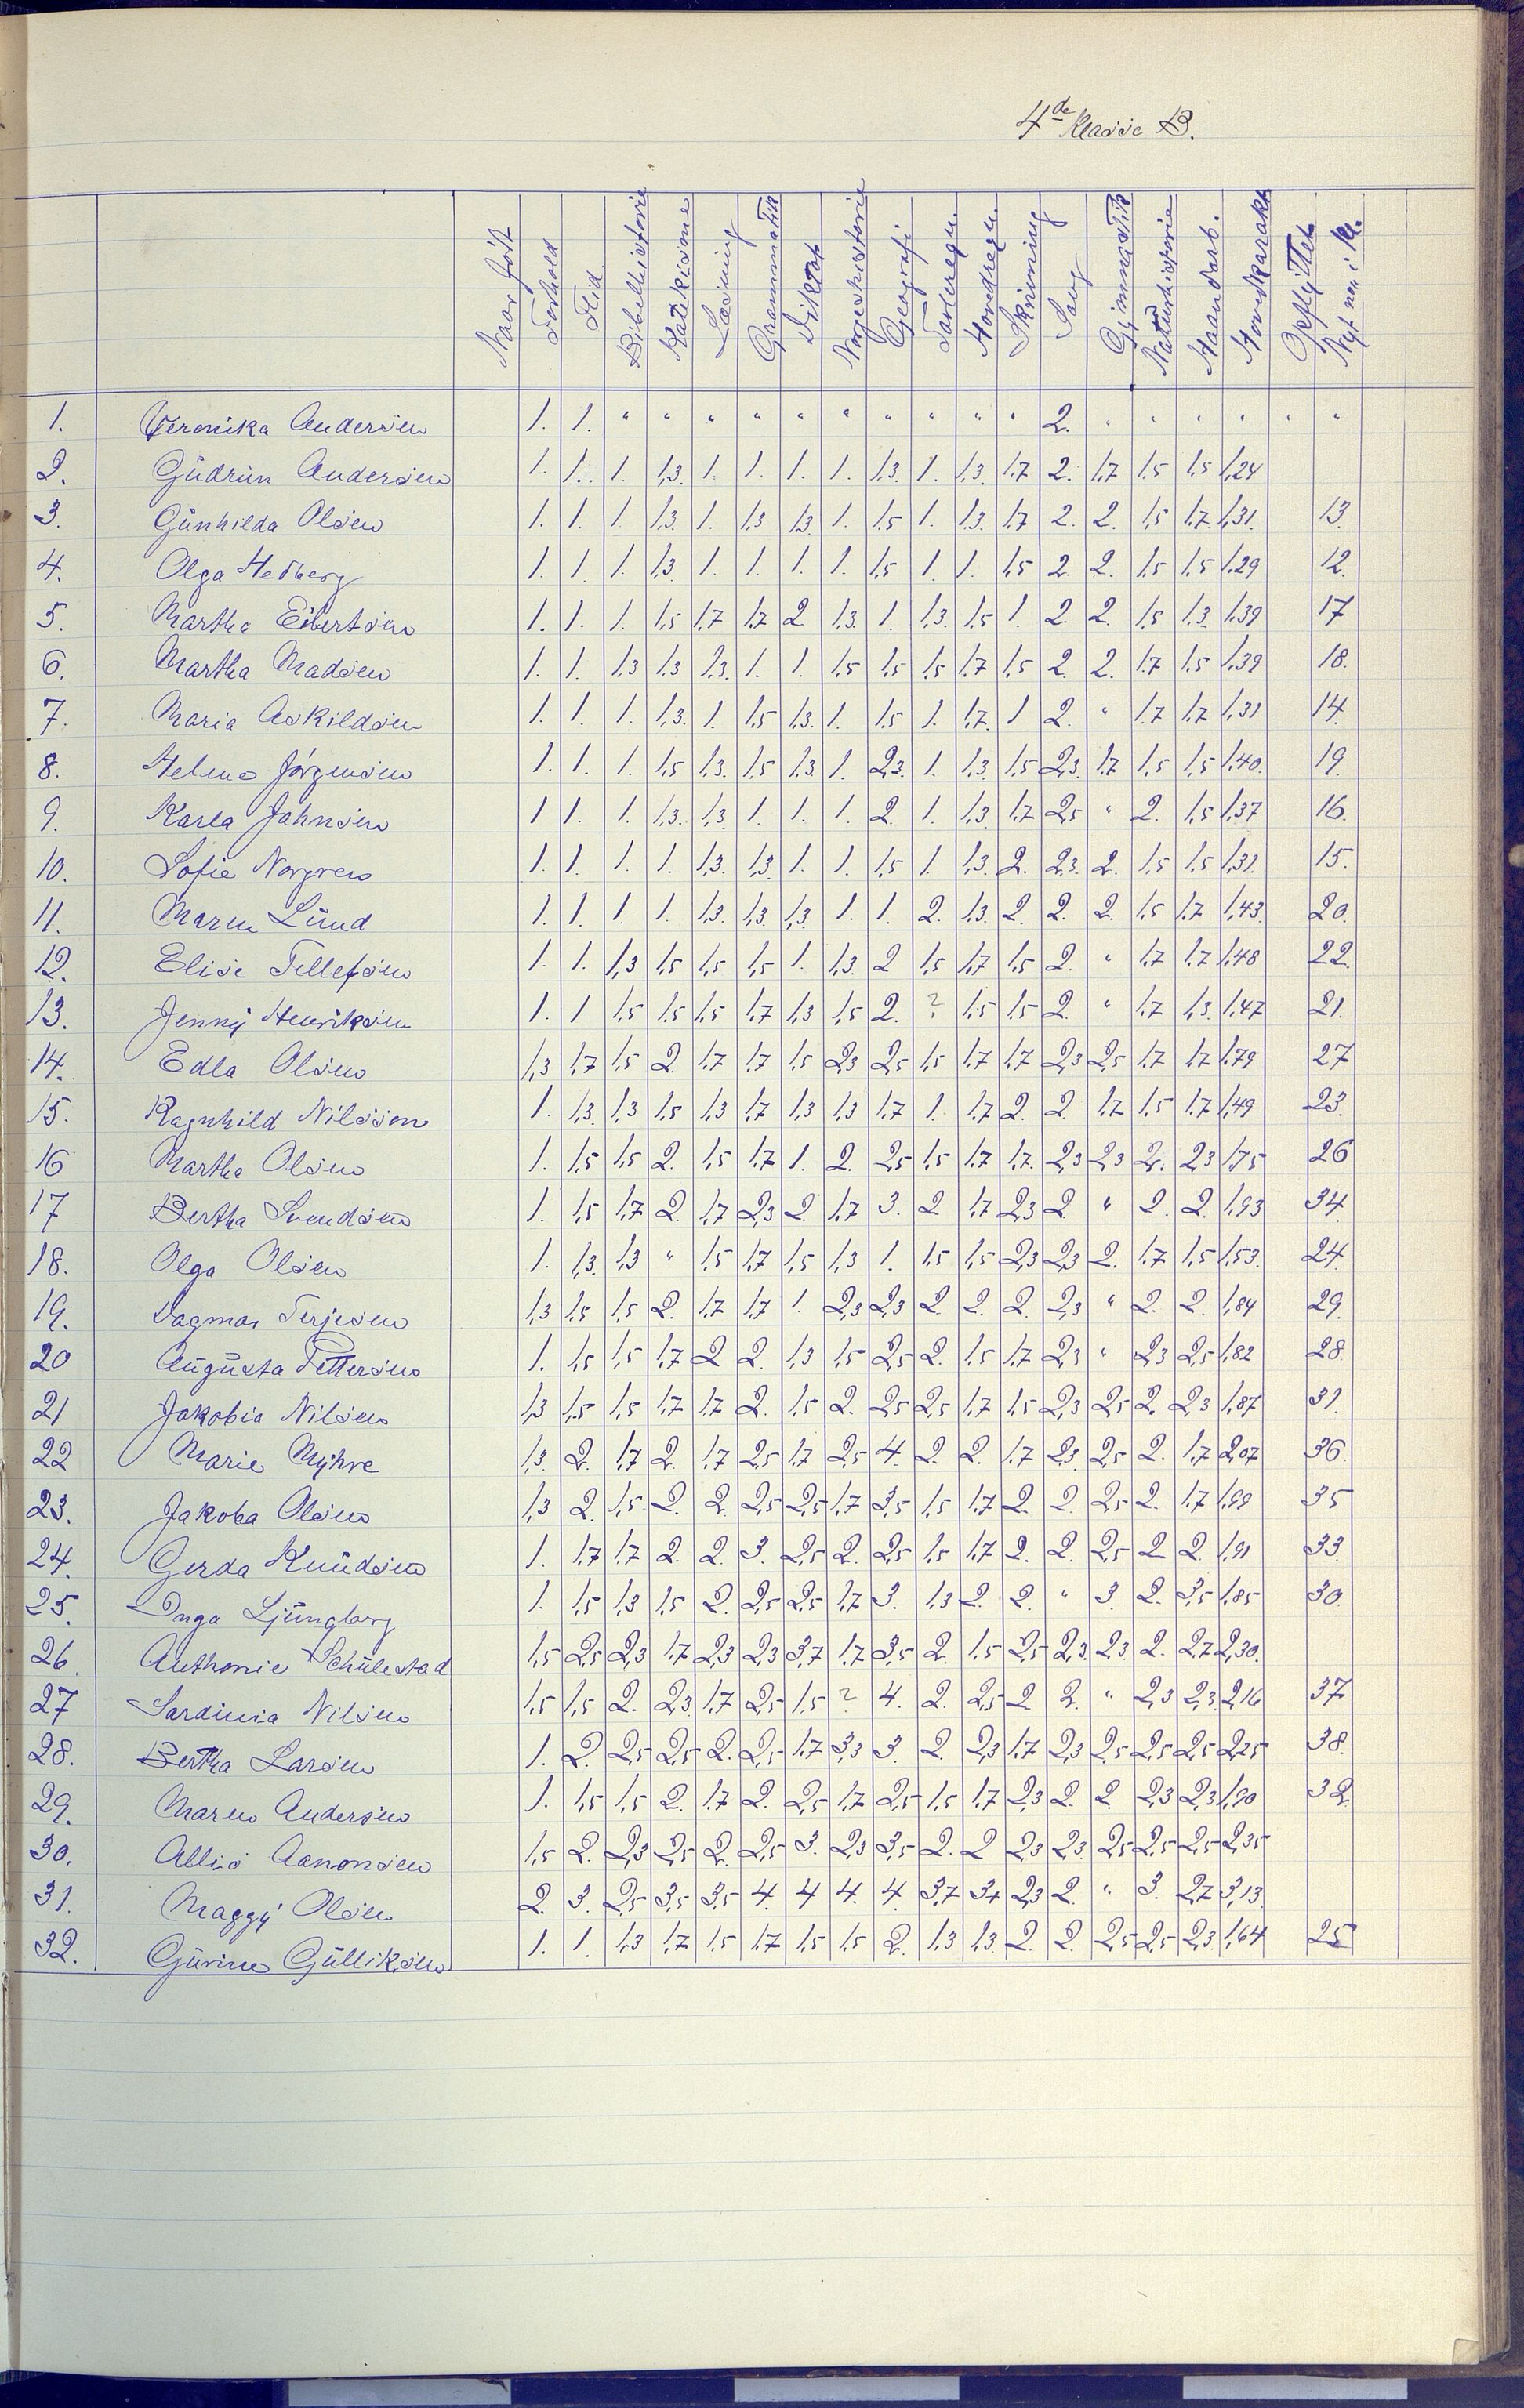 4de Klasse B.
Naar født Forhold Flid Bibelhistorie Katekisme Læsning Grammatik Diktat Norgeshistorie Geografi Tavleregn. Hovedregn. Skrivning Sang Gymnastik Naturhistorie Haandarb. Hovedkarakt Opflyttet Nyt no i kl.
1. Veronika Andersen 1. 1. " " " " " " " " " " 2. " " " " " "
2. Gudrun Andersen 1. 1. 1. 1,3. 1. 1. 1. 1. 1,3. 1. 1,3. 1,7 2. 1,7 1,5 1,5 1,24
3. Gunhilda Olsen 1. 1. 1. 1,3. 1. 1,3 1,3. 1. 1,5 1. 1,3. 1,7 2. 2. 1,5 1,7. 1,31. 13.
4. Olga Hedberg 1. 1. 1. 1,3 1. 1. 1. 1. 1,5 1. 1. 1,5 2. 2. 1,5 1,5 1,29 12.
5. Martha Eilertsen 1. 1. 1. 1,5 1,7 1,7 2 1,3. 1. 1,3. 1,5 1. 2. 2. 1,5 1,3. 1,39 17
6. Martha Madsen 1. 1. 1,3 1,3 1,3. 1. 1. 1,5 1,5 1,5 1,7 1,5 2. 2. 1,7 1,5 1,39 18.
7. Maria Askildsen 1. 1. 1. 1,3. 1. 1,5 1,3. 1. 1,5 1. 1,7. 1 2. " 1,7 1,7 1,31 14.
8. Helene Jørgensen 1. 1. 1. 1,5 1,3. 1,5 1,3 1. 2,3. 1. 1,3. 1,5 2,3. 1,7 1,5 1,5 1,40. 19.
9. Karla Jahnsen 1 1. 1. 1,3. 1,3. 1. 1. 1. 2. 1. 1,3 1,7 2,5 " 2. 1,5 1,37 16.
10. Sofie Norgren 1. 1. 1. 1. 1,3. 1,3. 1. 1. 1,5 1 1,3. 2. 2,3. 2. 1,5 1,5 1,31. 15.
11. Maren Lund 1. 1. 1. 1. 1,3. 1,3. 1,3. 1. 1. 2. 1,3. 2. 2. 2. 1,5 1,7 1,43. 20.
12. Elise Tellefsen 1. 1. 1,3 1,5 1,5 1,5 1. 1,3. 2 1,5 1,7 1,5 2. " 1,7 1,7 1,48 22.
13. Jenny Henriksen 1. 1 1,5 1,5 1,5 1,7 1,3 1,5 2. ? 1,5 1,5 2. " 1,7 1,3. 1,47 21.
14. Edla Olsen 1,3 1,7 1,5 2. 1,7 1,7 1,5 2,3 2,5 1,5 1,7 1,7 2,3 2,5 1,7 1,7 1,79 27
15. Ragnhild Nilsson 1. 1,3. 1,3 1,5 1,3 1,7 1,3 1,3 1,7 1. 1,7 2. 2. 1,7 1,5 1,7 1,49 23.
16 Martha Olsen 1. 1,5 1,5 2. 1,5 1,7 1. 2. 2,5 1,5 1,7 1,7. 2,3 2,3 2. 2,3 1,75 26
17 Bertha Svendsen 1. 1,5 1,7 2. 1,7 2,3 2. 1,7 3. 2 1,7 2,3 2. " 2. 2. 1,93 34
18. Olga Olsen 1. 1,3. 1,3 " 1,5 1,7 1,5 1,3 1. 1,5 1,5 2,3 2,3 2. 1,7 1,5 1,53. 24.
19. Dagmar Terjesen 1,3 1,5 1,5 2. 1,7 1,7 1. 2,3 2,3 2 2. 2. 2,3 " 2. 2. 1,84 29.
20 Augusta Pettersen 1. 1,5 1,5 1,7 2 2. 1,3 1,5 2,5 2. 1,5 1,7 2,3 " 2,3 2,5 1,82 28.
21 Jakobia Nilsen 1,3 1,5 1,5 1,7 1,7 2. 1,5 2. 2,5 2,5 1,7 1,5 2,3 2,5 2. 2,3 1,87 31.
22 Marie Myhre 1,3. 2. 1,7 2. 1,7 2,5 1,7 2,5 4. 2. 2. 1,7 2,3 2,5 2. 1,7 2,07 36.
23. Jakoba Olsen 1,3 2. 1,5 2. 2. 2,5 2,5 1,7 3,5 1,5 1,7 2. 2. 2,5 2. 1,7 1,99 35
24. Gerda Knudsen 1. 1,7 1,7 2. 2. 3. 2,5 2. 2,5 1,5 1,7 2. 2. 2,5 2 2. 1,91 33.
25. Inga Ljungberg 1. 1,5 1,3 1,5 2. 2,5 2,5 1,7 3. 1,3 2. 2. " 3. 2. 3,5 1,85 30.
26. Anthonie Schulestad 1,5 2,5 2,3 1,7 2,3 2,3 3,7 1,7 3,5 2. 1,5 2,5 2,3. 2,3. 2. 2,7 2,30.
27 Sardinia Nilsen 1,5 1,5 2. 2,3 1,7 2,5 1,5 ? 4. 2. 2,5 2 2. " 2,3 2,3. 2,16 37
28. Bertha Larsen 1. 2. 2,5 2,5 2. 2,5 1,7 3,3 3. 2. 2,3 1,7 2,3 2,5 2,5 2,5 2,25 38.
29. Maren Andersen 1. 1,5 1,5 2. 1,7 2. 2,5 1,7 2,5 1,5 1,7 2,3 2. 2 2,3 2,3 1,90 32.
30. Allis Aanonsen 1,5 2. 2,3 2,5 2. 2,5 3. 2,3 3,5 2. 2 2,3 2,3. 2,5 2,5 2,5 2,35
31. Maggy Olsen 2. 3. 2,5 3,5 3,5 4. 4 4. 4. 3,7 3+ 2,3 2. " 3. 2,7 3,13.
32. Gurine Gulliksen 1. 1. 1,3 1,7 1,5 1,7 1,5 1,5 2. 1,3 1,3. 2. 2. 2,5 2,5 2,3. 1,64 25